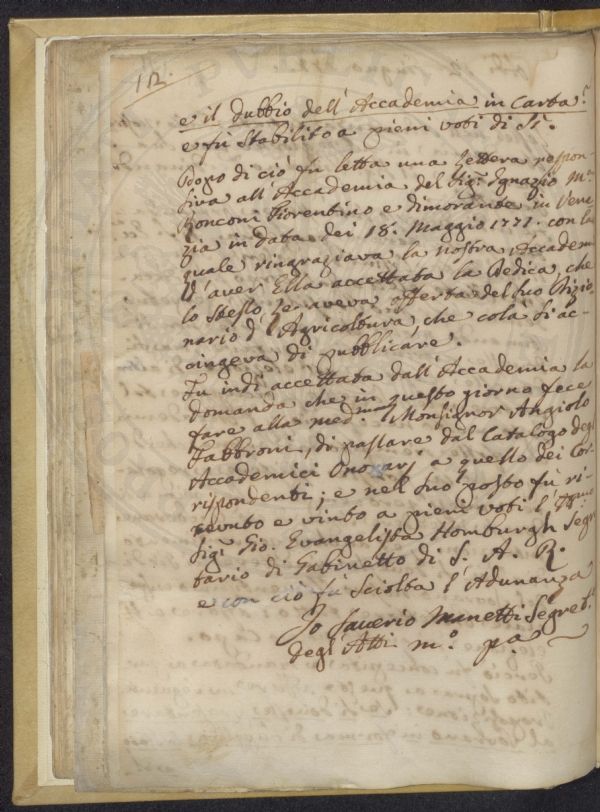 112.
e il dubbio dell'Accademia in Carta.
e fù Stabilito a pieni voti di Sì.
Dopo di ciò fu letta una Lettera respon-
siva all'Accademia del Sig.r Ignazio M.a
Ronconi Fiorentino e dimorante in Vene
zia in data dei 18. Maggio 1771. con la
quale ringraziava la nostra Accademia
d'aver Ella accettata la Dedica, che
lo stesso Le aveva offerta del suo Dizio-
nario d'Agricoltura, che colà si ac-
cingeva di pubblicare.
Fu indi accettata dall'Accademia la
domanda che in questo giorno fece
fare alla med.ma Monsignor Angiolo
Fabbroni, di passare dal Catalogo degl
Accademici Onorarj a quello dei Cor-
rispondenti; e nel suo posto fù ri-
cevuto e vinto a pieni voti l'Ill.mo
Sig.r Gio. Evangelista Homburgh Segre
tario di Gabinetto di S. A. R.
e con ciò fù Sciolta l'Adunanza
Io Saverio Manetti Segret.o
degl'Atti m.o p.a